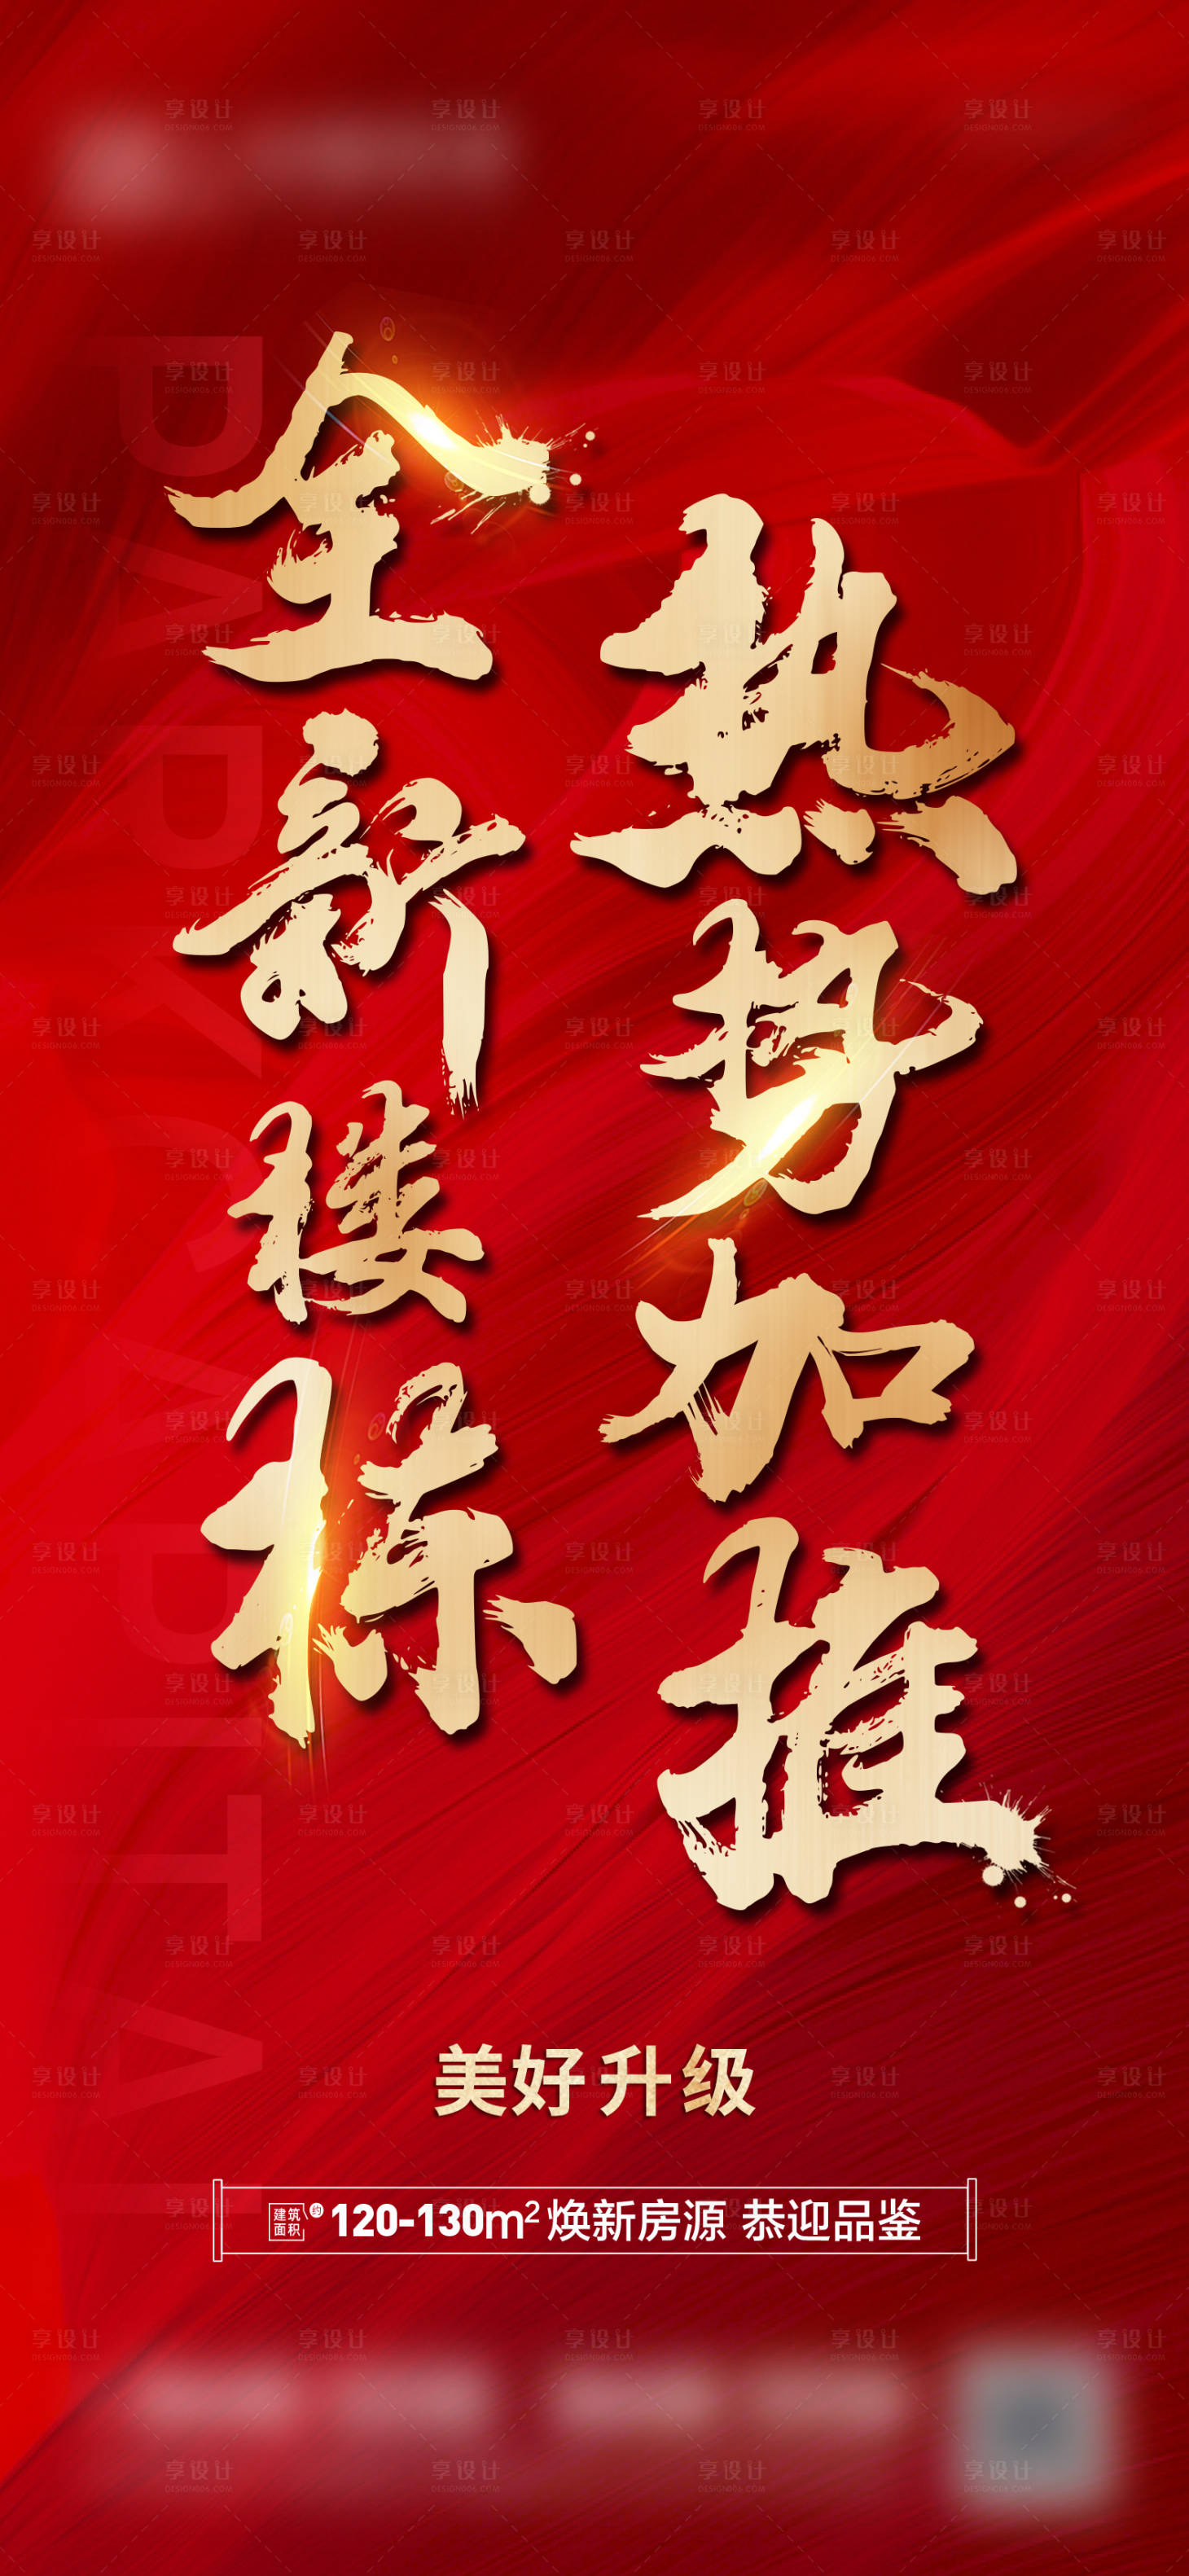 全新楼标
热势加推
美好升级
建筑面积 约 120-130m² 焕新房源 恭迎品鉴
享设计
DESIGN006.COM